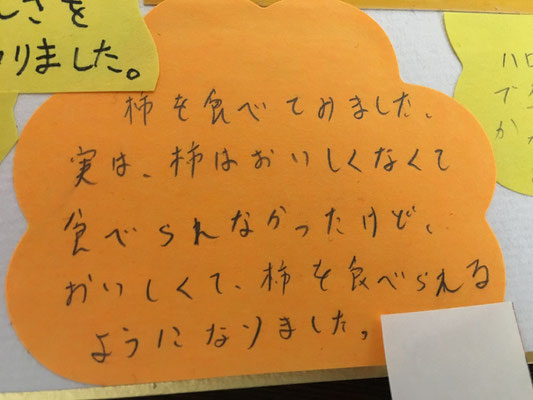 しさを
りました。
柿を食べてみました、
実は、柿はおいしくなくて
食べられなかったけど、
おいしくて、柿を食べられる
ようになりました。
ハロ
で
か